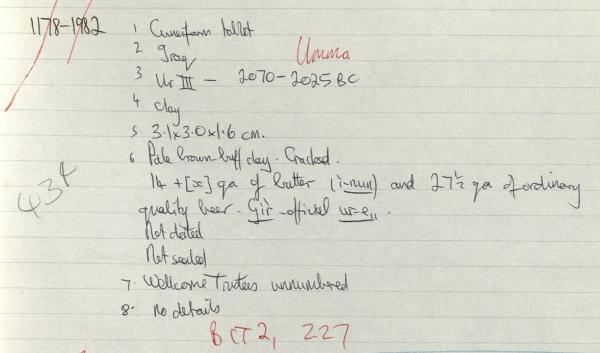 1178-1982 1 Cuneiform tablet
2 Iraq Umma
3 Ur III - 2070-2025 BC
4 clay
5 3.1x3.0x1.6 cm.
6 Pale brown-buff clay. Cracked.
14 + [x] qa of butter (i-nun) and 27½ qa of ordinary
quality beer. Gìr-official ur-e₁₁.
Not dated
Not sealed
434
7. Wellcome Trustees unnumbered
8. no details
BCT 2, 227